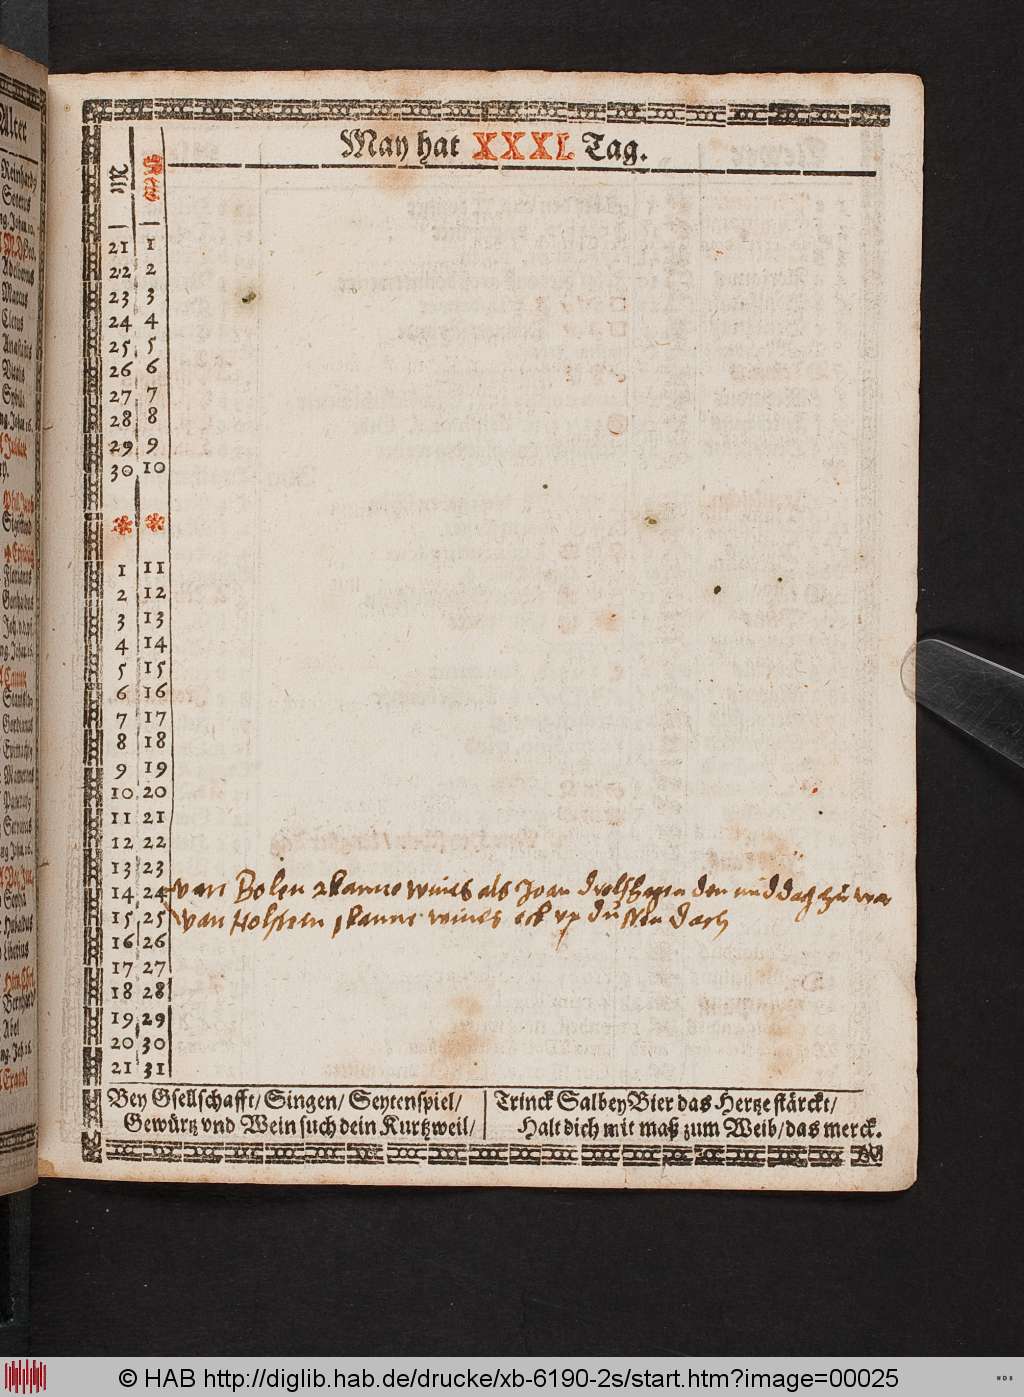 May hat XXXI. Tag.
Alt New
21 1
22 2
23 3
24 4
25 5
26 6
27 7
28 8
29 9
30 10
1 11
2 12
3 13
4 14
5 15
6 16
7 17
8 18
9 19
10 20
11 21
12 22
13 23
14 24 van Bolen 2 kanne wines als Joan den middag
15 25 van Holsten 1 kanne wines up dussen dach
16 26
17 27
18 28
19 29
20 30
21 31
Bey Gsellschafft/ Singen/ Seytenspiel/
Gewürtz vnd Wein such dein Kurtzweil/
Trinck Salbey Bier das Hertze stärckt/
Halt dich mit maß zum Weib/ das merck.
Alter
Reinhardy
Soterus
Adelbertus
Marcus
Cletus
Vitalis
Sybilla
Florianus
Gothardus
Gordianus
Mamertus
Servatius
Sophia
Liberius
Bernhard
Abel
Exaudi
© HAB http://diglib.hab.de/drucke/xb-6190-2s/start.htm?image=00025